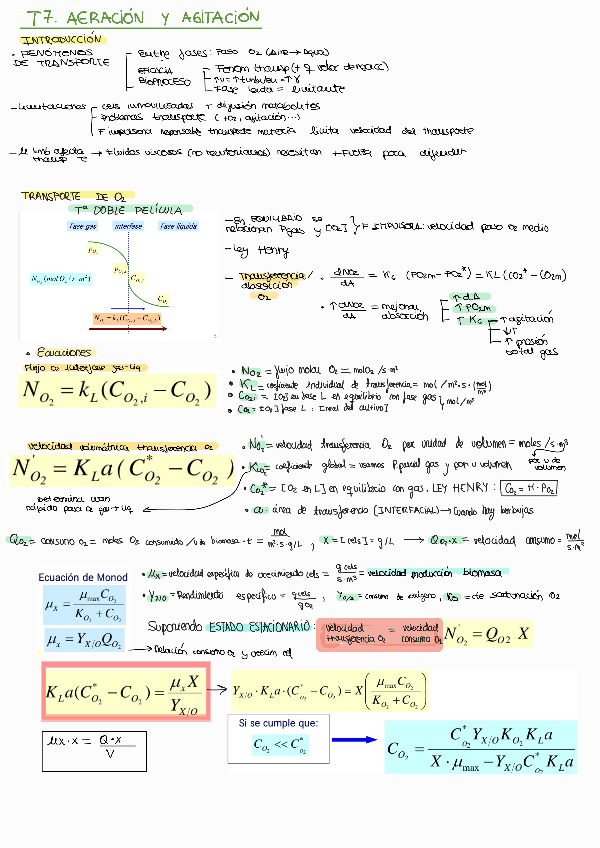 T7. AERACIÓN Y AGITACIÓN
INTRODUCCIÓN
• FENÓMENOS DE TRANSPORTE
Entre fases: Paso O2 (Aire → Agua)
EFICACIA BIOPROCESO
Fase lenta = limitante
- Limitaciones
cels inmovilizadas ↑ difusión metabolitos
Problemas transporte (↓O2, agitación...)
F impulsora responsable transporte materia limita velocidad del transporte
→ Fluidos viscosos (no newtonianos) necesitan + F para difundir
TRANSPORTE DE O2
Tª DOBLE PELÍCULA
Fase gas interfase Fase líquida
P_O2
P_O2,i
C_O2,i
C_O2
N_O2 (mol O2 / s · m²)
N_O2 = k_L(C_O2,i − C_O2)
- En EQUILIBRIO se relacionan Pgas y [O2] } F IMPULSORA: velocidad paso de medio
- Ley Henry
- Transferencia/absorción O2
• dNO2/dA = KG (PO2m − PO2*) = KL (CO2* − CO2m)
• ↑ dNO2/dA = mejorar absorción
↑ dA
↑ PO2m
↑ KG → ↑ agitación
↑ presión total gas
• Ecuaciones
Flujo O2 interfase gas-liq
N_O2 = k_L (C_O2,i − C_O2)
• NO2 = flujo molar O2 = molO2 / s·m²
• KL = coeficiente individual de transferencia = mol / m²·s·(mol/m³)
• CO2i = [O2] en fase L en equilibrio con fase gas } mol/m³
• CO2 = [O2] fase L : [real del cultivo]
Velocidad volumétrica transferencia O2
N'_O2 = K_L a (C*_O2 − C_O2)
Determina
• N'O2 = velocidad transferencia O2 por unidad de volumen = moles / s·m³
por u de volumen
coeficiente global = usamos P parcial gas y por u volumen
• CO2* = [O2 en L] en equilibrio con gas. LEY HENRY: CO2 = H · PO2
• a: área de transferencia (INTERFACIAL) → Cuando hay burbujas
QO2 = consumo O2 = moles O2 consumido / u de biomasa · t = , X = [cels] = g/L → QO2·X = velocidad consumo = mol / s·m³
Ecuación de Monod
μ_X = μ_max C_O2 / (K_O2 + C_O2)
μ_x = Y_X/O Q_O2
• μX = velocidad específica de crecimiento cels = g cels / s·m³ = velocidad producción biomasa
• YX/O = Rendimiento específico = g cels / g O2 , = consumo de oxígeno, KO = cte saturación O2
Suponiendo ESTADO ESTACIONARIO: velocidad transferencia O2 = velocidad consumo O2 N'_O2 = Q_O2 X
→ Relación consumo O2 y crecim
K_L a(C*_O2 − C_O2) = μ_x X / Y_X/O
Y_X/O · K_L a · (C*_O2 − C_O2) = X (μ_max C_O2 / (K_O2 + C_O2))
μX · X = Q·X / V
Si se cumple que:
C_O2 << C*_O2
C_O2 = C*_O2 Y_X/O K_O2 K_L a / (X · μ_max − Y_X/O C*_O2 K_L a)